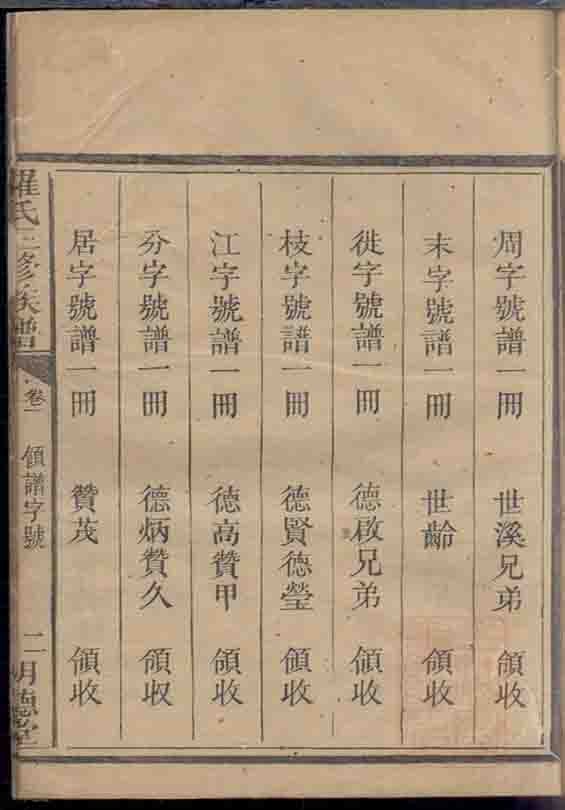 周字號譜一冊 世溪兄弟 領收
末字號譜一冊 世齡 領收
徙字號譜一冊 德啟兄弟 領收
枝字號譜一冊 德賢德瑩 領收
江字號譜一冊 德高贊甲 領收
分字號譜一冊 德炳贊久 領収
居字號譜一冊 贊茂 領收
羅氏三修族譜 卷一 領譜字號 二 明德堂